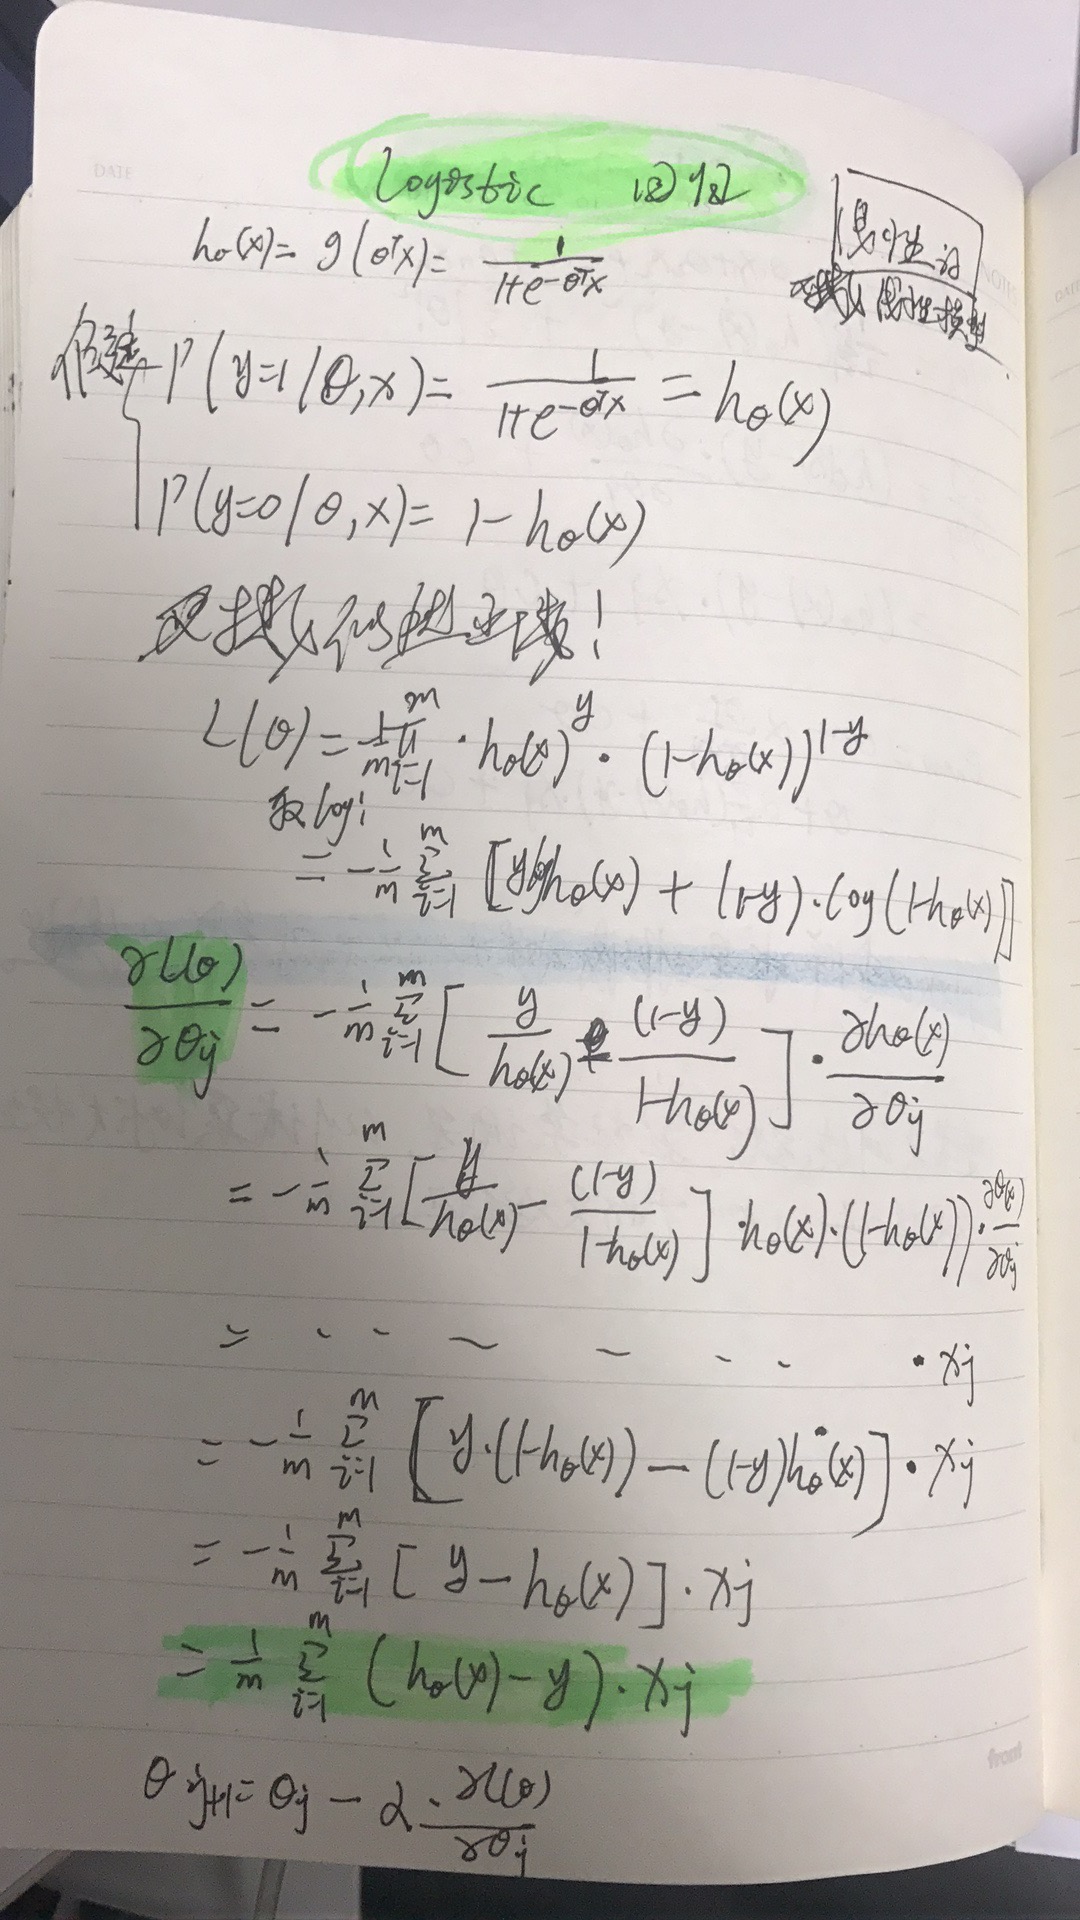 DATE
Logistic 回归
hθ(x) = g(θᵀx) = 1/(1+e^-θᵀx)
线性模型
假设 P(y=1/θ,x) = 1/(1+e^-θᵀx) = hθ(x)
P(y=0/θ,x) = 1-hθ(x)
L(θ) = 1/m ∏_{i=1}^{m} · hθ(x)^y · (1-hθ(x))^{1-y}
取log:
= -1/m Σ_{i=1}^{m} [y log hθ(x) + (1-y)·log(1-hθ(x))]
∂L(θ)/∂θj = -1/m Σ_{i=1}^{m} [y/hθ(x) - (1-y)/(1-hθ(x))] · ∂hθ(x)/∂θj
= -1/m Σ_{i=1}^{m} [y/hθ(x) - (1-y)/(1-hθ(x))] · hθ(x)·(1-hθ(x)) · ∂θ(x)/∂θj
= - - - - - - - · xj
= -1/m Σ_{i=1}^{m} [y·(1-hθ(x)) - (1-y)hθ(x)] · xj
= -1/m Σ_{i=1}^{m} [y-hθ(x)] · xj
= 1/m Σ_{i=1}^{m} (hθ(x)-y) · xj
front
θj+1 = θj - α · ∂L(θ)/∂θj